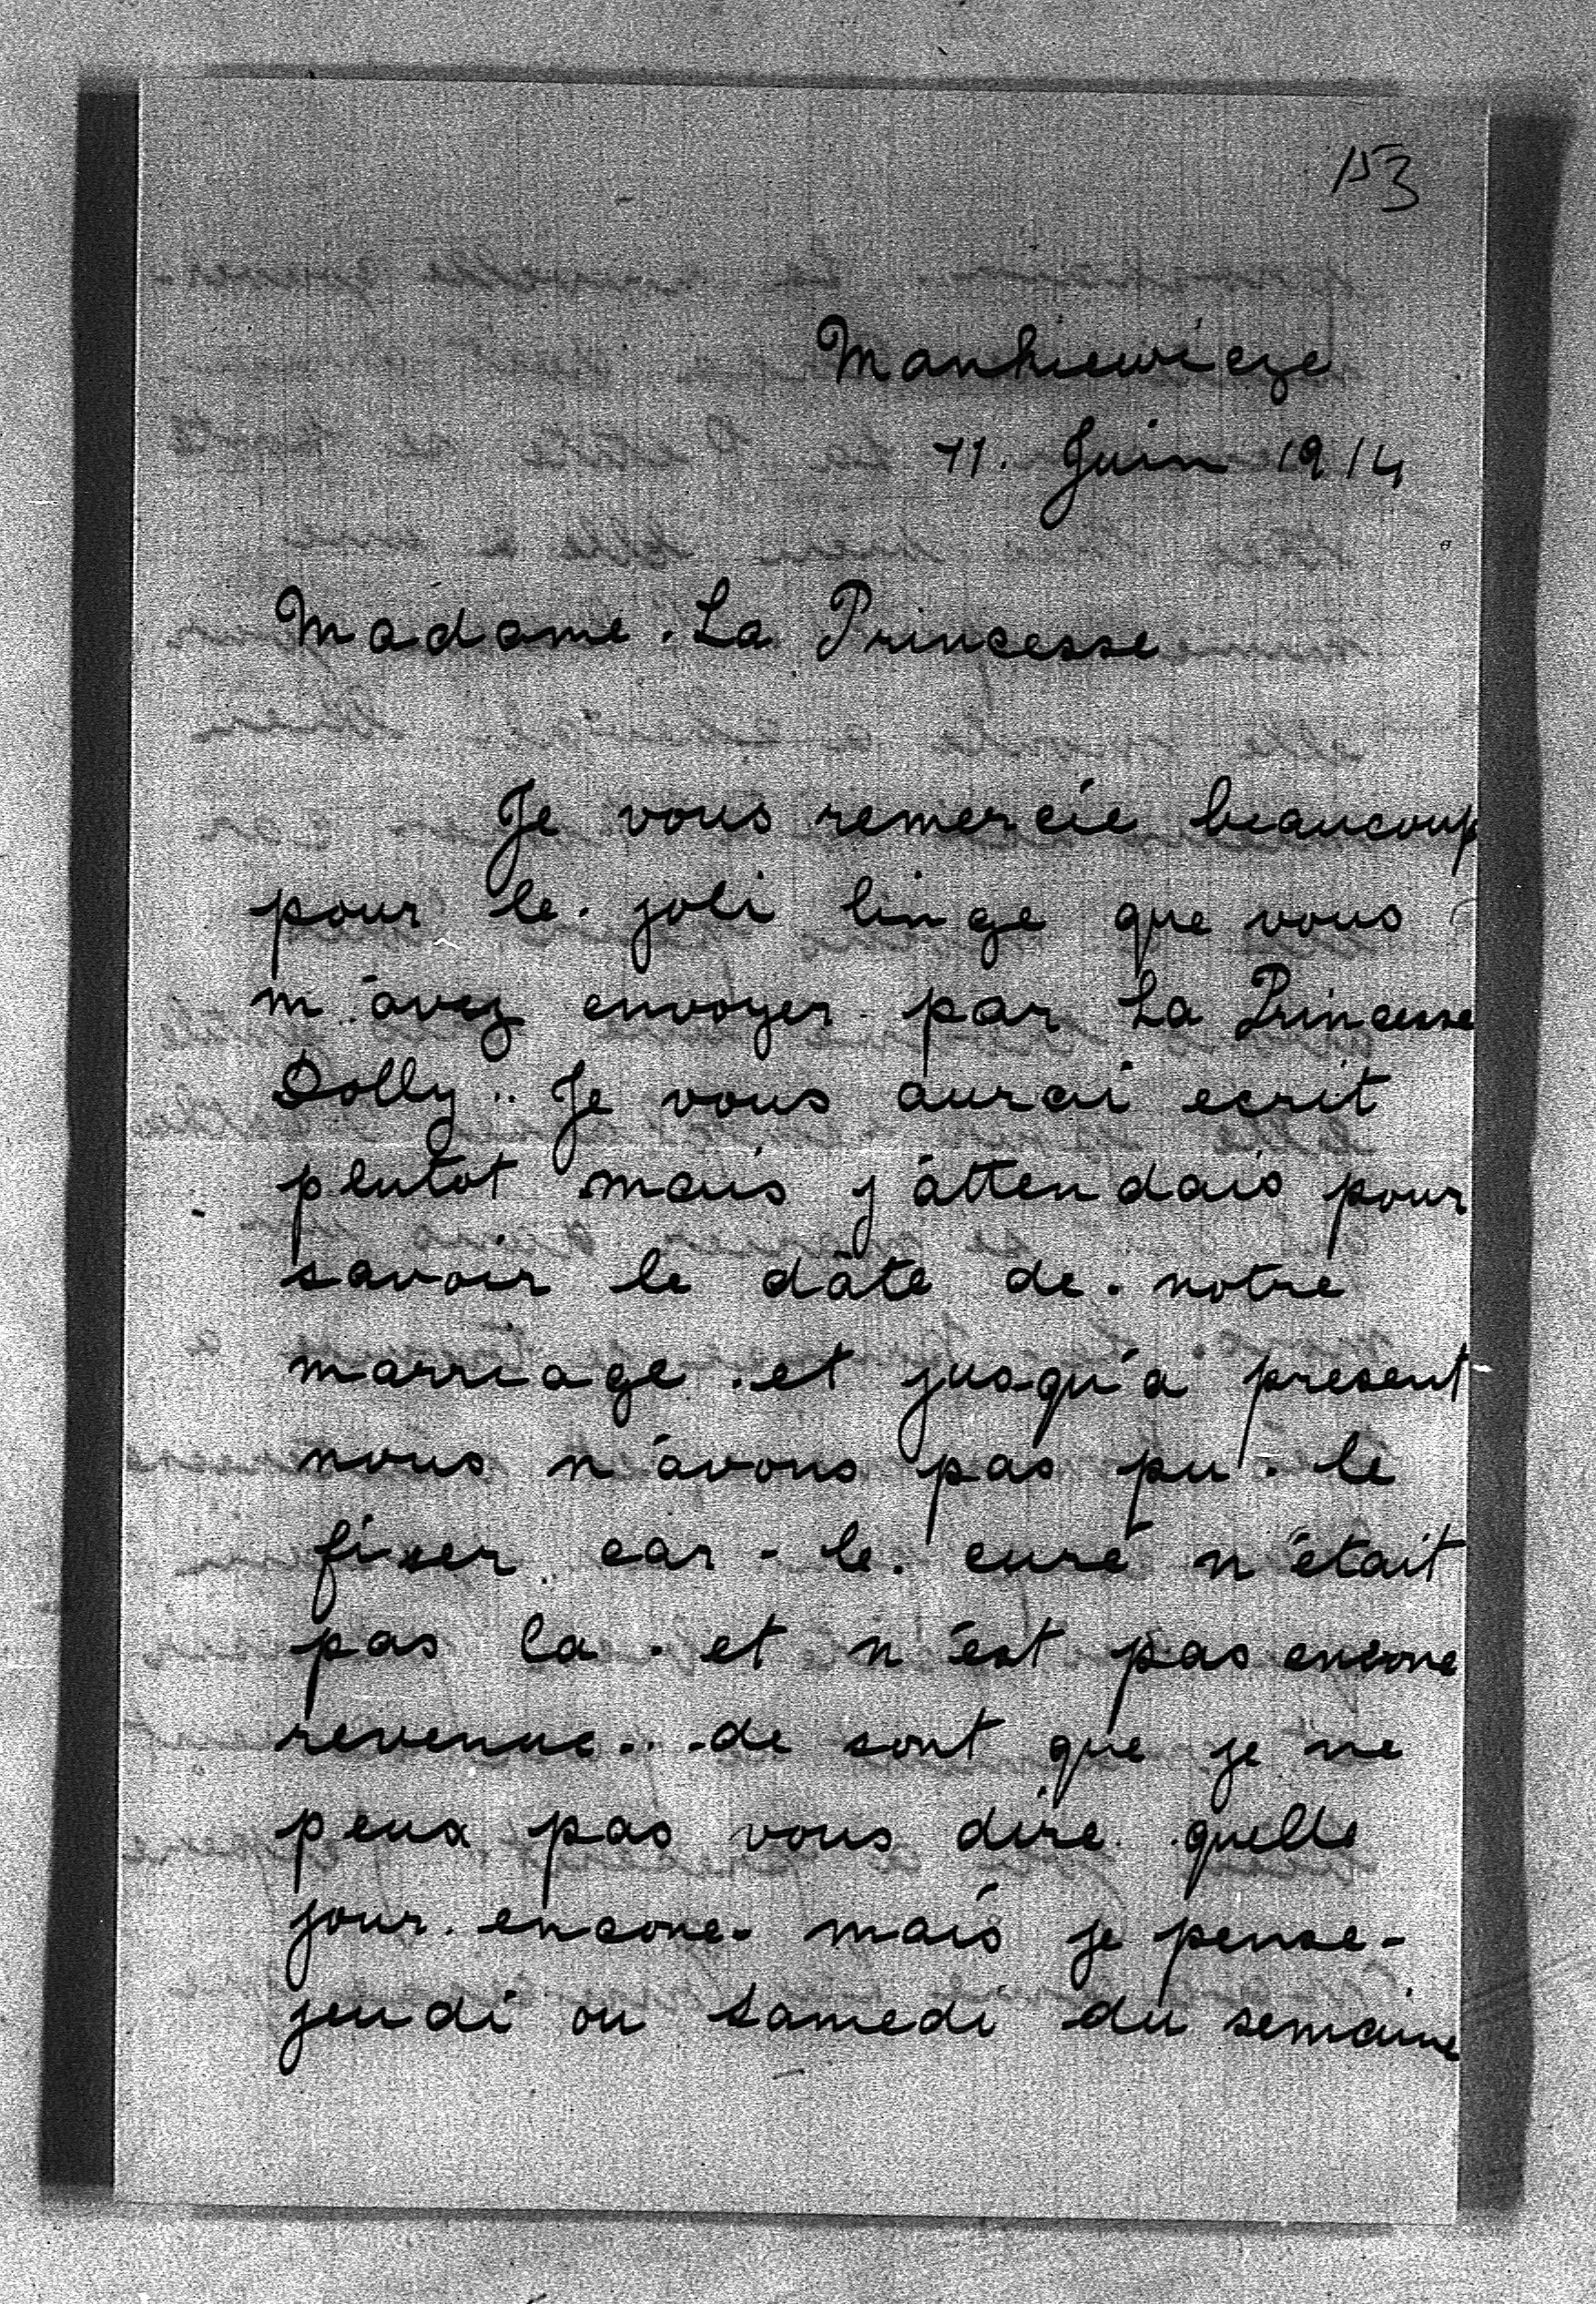 153
Mankiewicze
11. Juin 1914
Madame. La Princesse
Je vous remercie beaucoup
pour le. joli linge que vous
m'avez envoyer par La Princesse
Dolly.. Je vous aurai ecrit
plutot mais j'attendais pour
savoir le dâte de. notre
marriage. et jusqu'a present
nous n'avons pas pu. le
fixer car - le. curé n'était
pas la. et n'est pas encore
revenue.. de sont que je ne
peux pas vous dire. quelle
jour. encore. mais je pense-
jeudi ou samedi du semaine